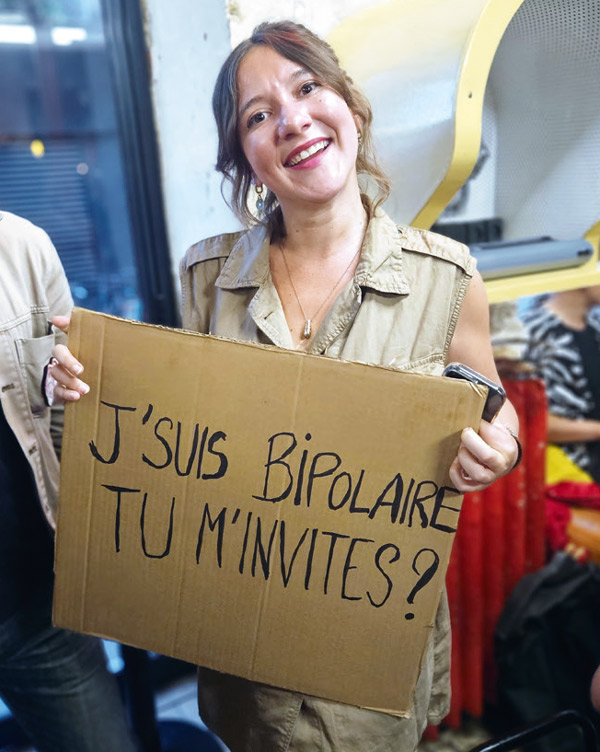 J'SUIS BIPOLAIRE
TU M'INVITES?